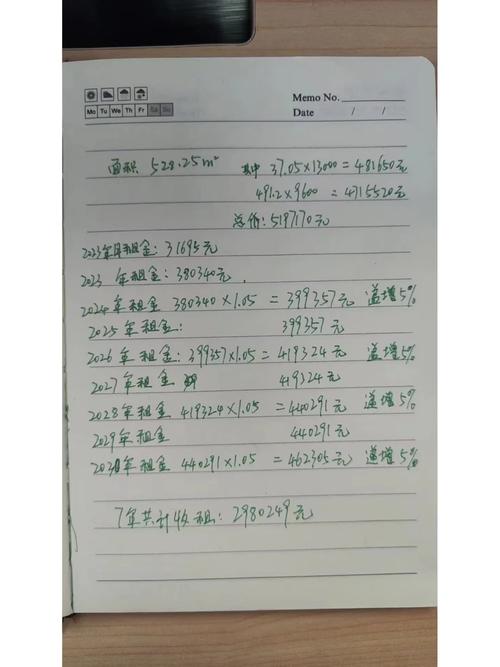 Memo No.
Mo Tu We Th Fr Sa Su
Date / /
面积 528.25m² 其中 37.05×13000=481650元
491.2×9600=4715520元
总价:5197170元
2023年月租金:31695元
2023 年租金:380340元.
2024年租金 380340×1.05=399357元 递增5%
2025年租金: 399357元
2026年租金:399357×1.05=419324元 递增5%
2027年租金 419324元
2028年租金 419324×1.05=440291元 递增5%
2029年租金 440291元
2030年租金 440291×1.05=462305元 递增5%
7年共计收租:2980249元